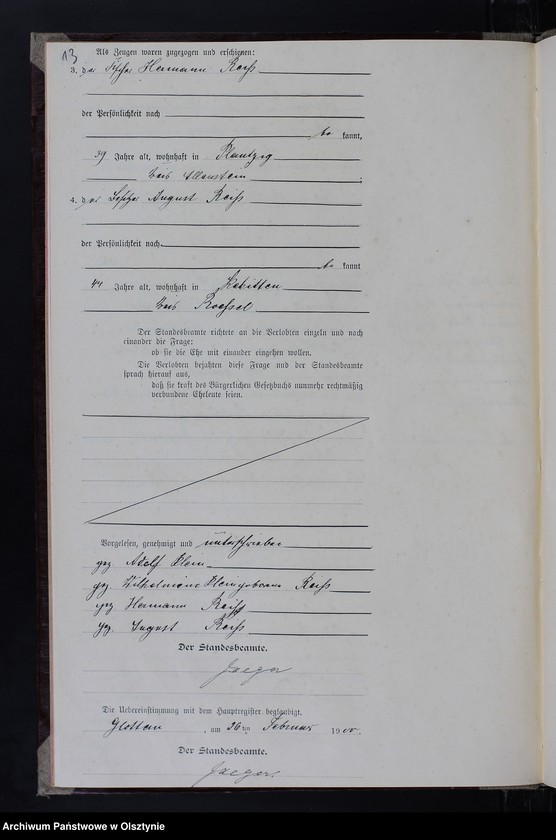 13
Als Zeugen waren zugezogen und erschienen:
3. der Hermann Reiß
der Persönlichkeit nach
be kannt,
39 Jahre alt, wohnhaft in Plautzig
Kreis Allenstein
4. der Besitzer August Reiß
der Persönlichkeit nach
be kannt
44 Jahre alt, wohnhaft in Kabitten
Kreis Roessel
Der Standesbeamte richtete an die Verlobten einzeln und nach
einander die Frage:
ob sie die Ehe mit einander eingehen wollen.
Die Verlobten bejahten diese Frage und der Standesbeamte
sprach hierauf aus,
daß sie kraft des Bürgerlichen Gesetzbuchs nunmehr rechtmäßig
verbundene Eheleute seien.
Vorgelesen, genehmigt und unterschrieben
gez Adolf Klein
gez Wilhelmine Klein geborene Reiß
gez Hermann Reiß
gez. August Reiß
Der Standesbeamte.
Jaeger
Die Uebereinstimmung mit dem Hauptregister beglaubigt.
Glottau, am 26ten Februar 1900.
Der Standesbeamte.
Jaeger.
Archiwum Państwowe w Olsztynie